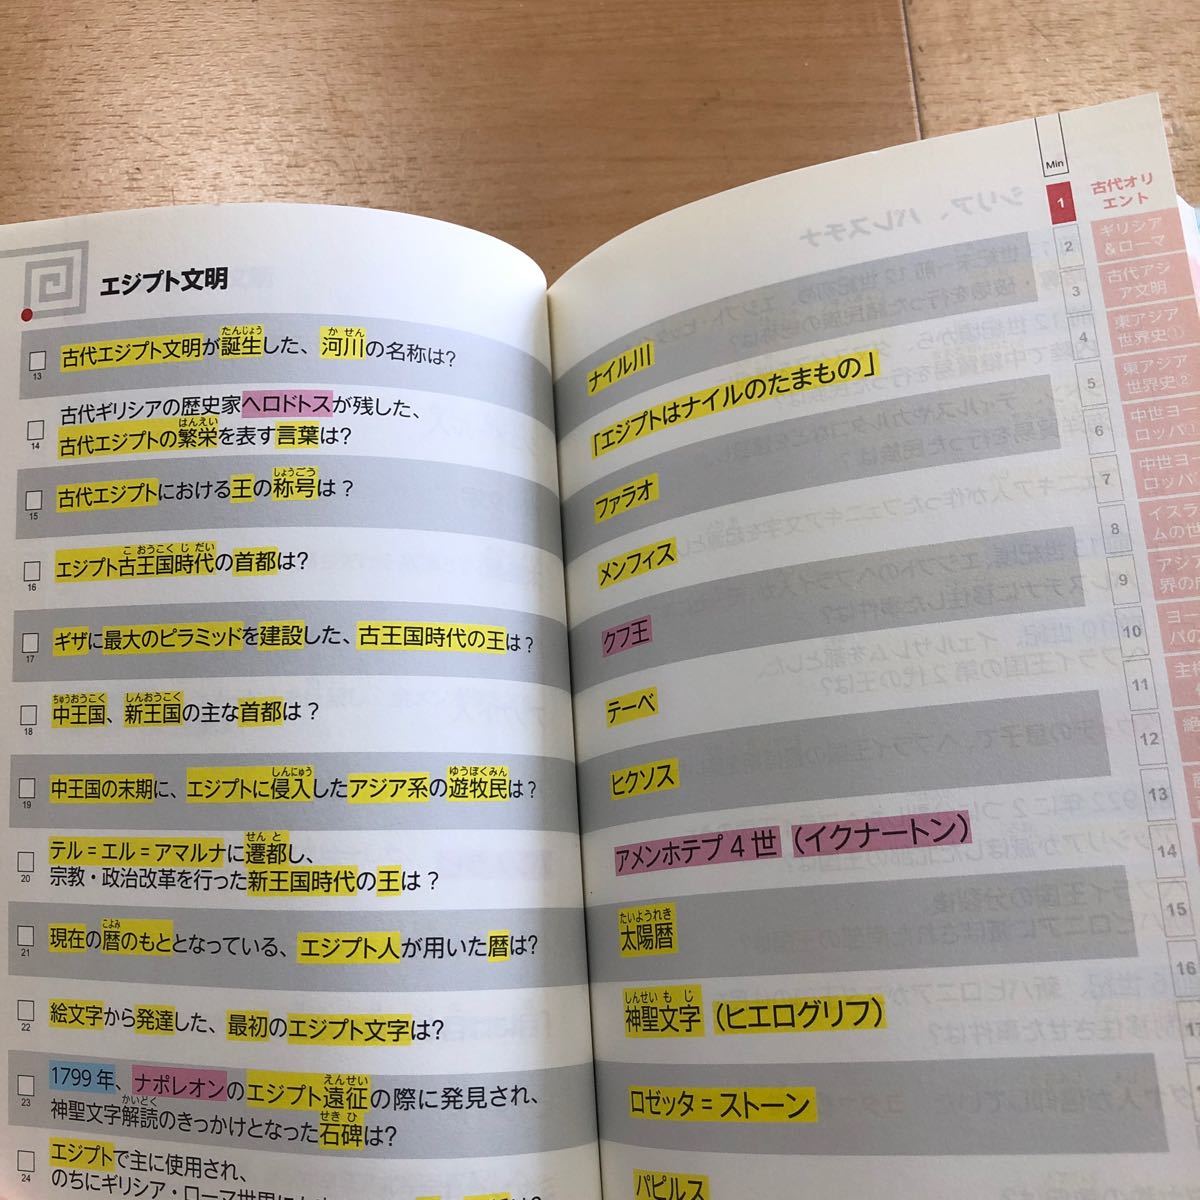 エジプト文明
13
古代エジプト文明が誕生した、河川の名称は?
たんじょう
か せん
14
古代ギリシアの歴史家ヘロドトスが残した、
古代エジプトの繁栄を表す言葉は?
はんえい
15
古代エジプトにおける王の称号は？
しょうごう
16
エジプト古王国時代の首都は?
こ おうこく じ だい
17
ギザに最大のピラミッドを建設した、古王国時代の王は？
18
中王国、新王国の主な首都は？
ちゅうおうこく
しんおうこく
19
中王国の末期に、エジプトに侵入したアジア系の遊牧民は？
しんにゅう
ゆうぼくみん
20
テル＝エル＝アマルナに遷都し、
せん と
宗教・政治改革を行った新王国時代の王は？
21
現在の暦のもととなっている、エジプト人が用いた暦は?
こよみ
22
絵文字から発達した、最初のエジプト文字は?
23
1799年、ナポレオンのエジプト遠征の際に発見され、
えんせい
神聖文字解読のきっかけとなった石碑は?
かいどく
せき ひ
24
エジプトで主に使用され、
のちにギリシア・ローマ世界に
ナイル川
「エジプトはナイルのたまもの」
ファラオ
メンフィス
クフ王
テーベ
ヒクソス
アメンホテプ4世（イクナートン）
たいようれき
太陽暦
しんせい も じ
神聖文字（ヒエログリフ）
ロゼッタ＝ストーン
パピルス
Min
1
2
3
4
5
6
7
8
9
10
11
12
13
14
15
16
古代オリ
エント
ギリシア
＆ローマ
古代アジ
ア文明
東アジア
世界史①
東アジア
世界史②
中世ヨー
ロッパ①
中世ヨー
ロッパ
イスラ
ムの世
アジア
界の
ヨー
パの
主
絶